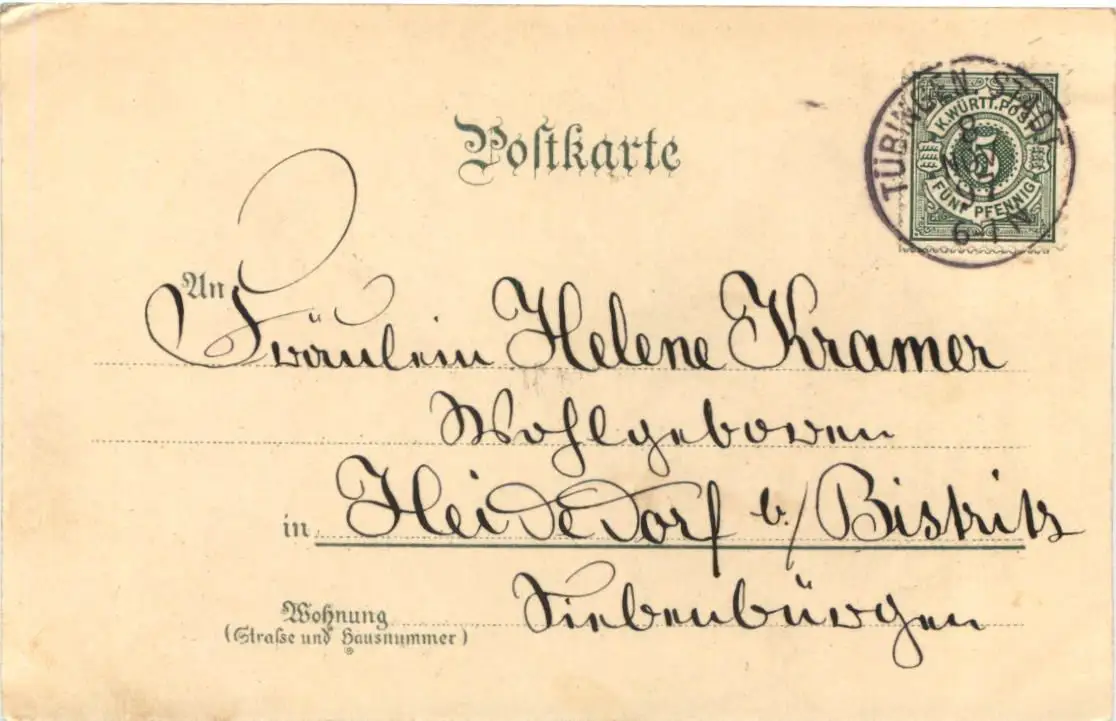 Postkarte
K. WÜRTT. POST
5
FÜNF PFENNIG
TÜBINGEN STADT
8
NOV
97
6-7 N
An Fräulein Helene Kramer
Wohlgeboren
in Heidedorf b./ Bistritz
Siebenbürgen
Wohnung
(Straße und Hausnummer)